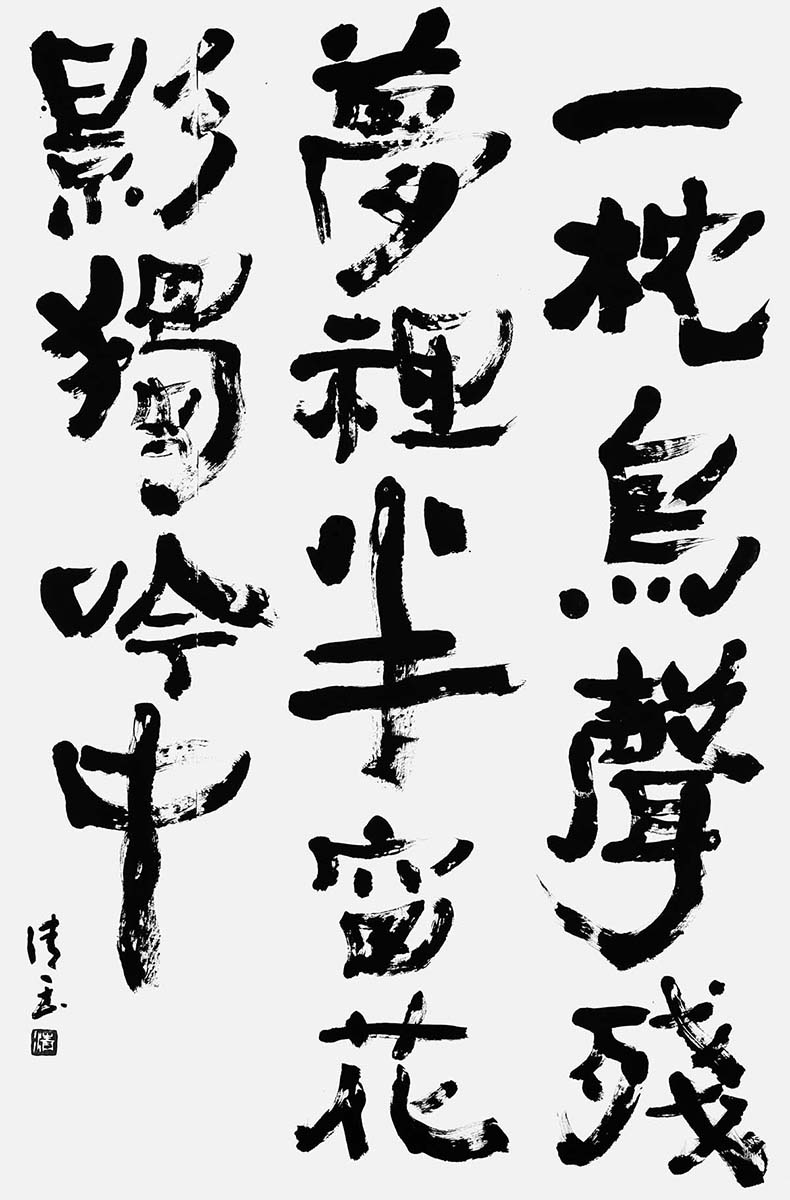 一枕鳥聲殘
夢裡半窗花
影獨吟中
清